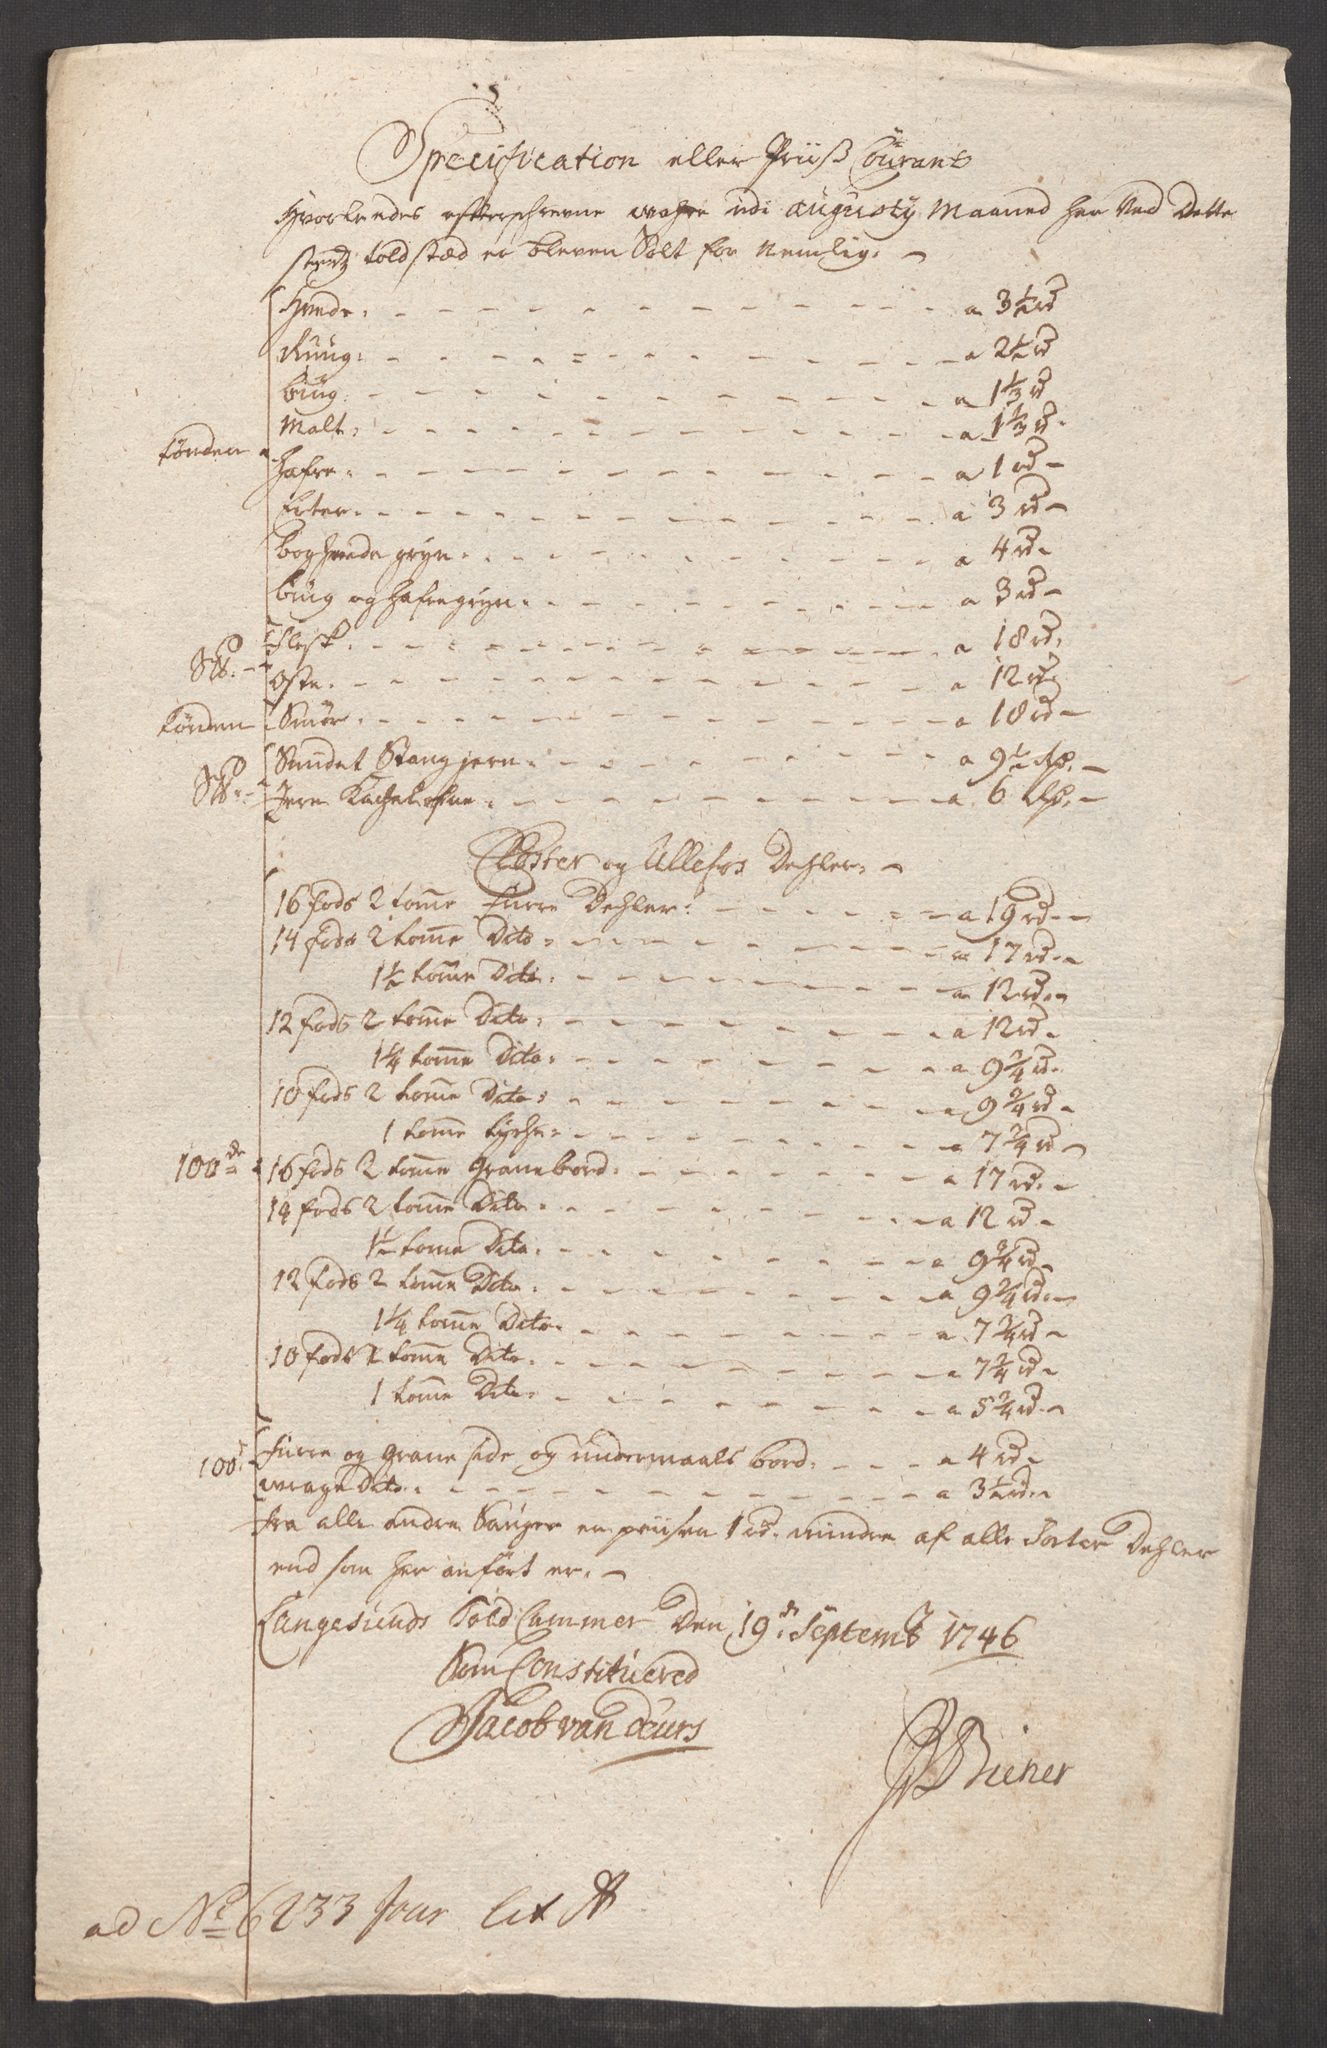 Specification eller Priiß Courant
Hvorledes efterschrevne wahre udi Augusty Maaned her Ved Dette
steds toldstæd er bleven Solt for Nemlig.
Hvede. a 3½ rd
Ruug. a 2½ rd
biug. a 1⅓ rd
Malt. a 1⅓ rd.
tønden
hafre. a 1 rd
Erter. a 3 rd
boghvede gryn. a 4 rd.
biug og hafregryn. a 3 rd
Flesk. a 18 rd.
S℔.
Oste. a 12 rd.
tønden Smør. a 10 rd
Smidet Stangjern. a 9½
S℔.
Jern Kachelofne. a 6
Closter og Ullefos Dehler.
16 fods 2 tomme furre Dehler. a 19 rd.
14 fods 2 tomme Dito a 17 rd.
1½ tomme Dito. a 12 rd.
12 fods 2 tomme Dito. a 12 rd.
1¼ tomme Dito. a 9¾ rd.
10 fods 2 tomme Dito. a 9¾ rd
1 tomme tycke a 7¾ rd
100de 16 fods 2 tomme granebord. a 17 rd.
14 fods 2 tomme Dito. a 12 rd
1½ tomme Dito. a 9¾ rd
12 fods 2 tomme Dito. a 9¾ rd.
1¼ tomme Dito. a 7¾ rd
10 fods 2 tomme Dito. a 7¾ rd
1 tomme Dito. a 5¾ rd.
100de furre og grane side og undermaals bord. a 4 rd.
wrage Dito. a 3½ rd.
fra alle andre Sauger er priisen 1 rd. mindre af alle Sorter Dehler
end som her anført er.
Langesunds Told Cammer Den 19de Septemb 1746
Som Constituered
Jacob van Deurs
Biener
ad No 6233 Jour Lit A